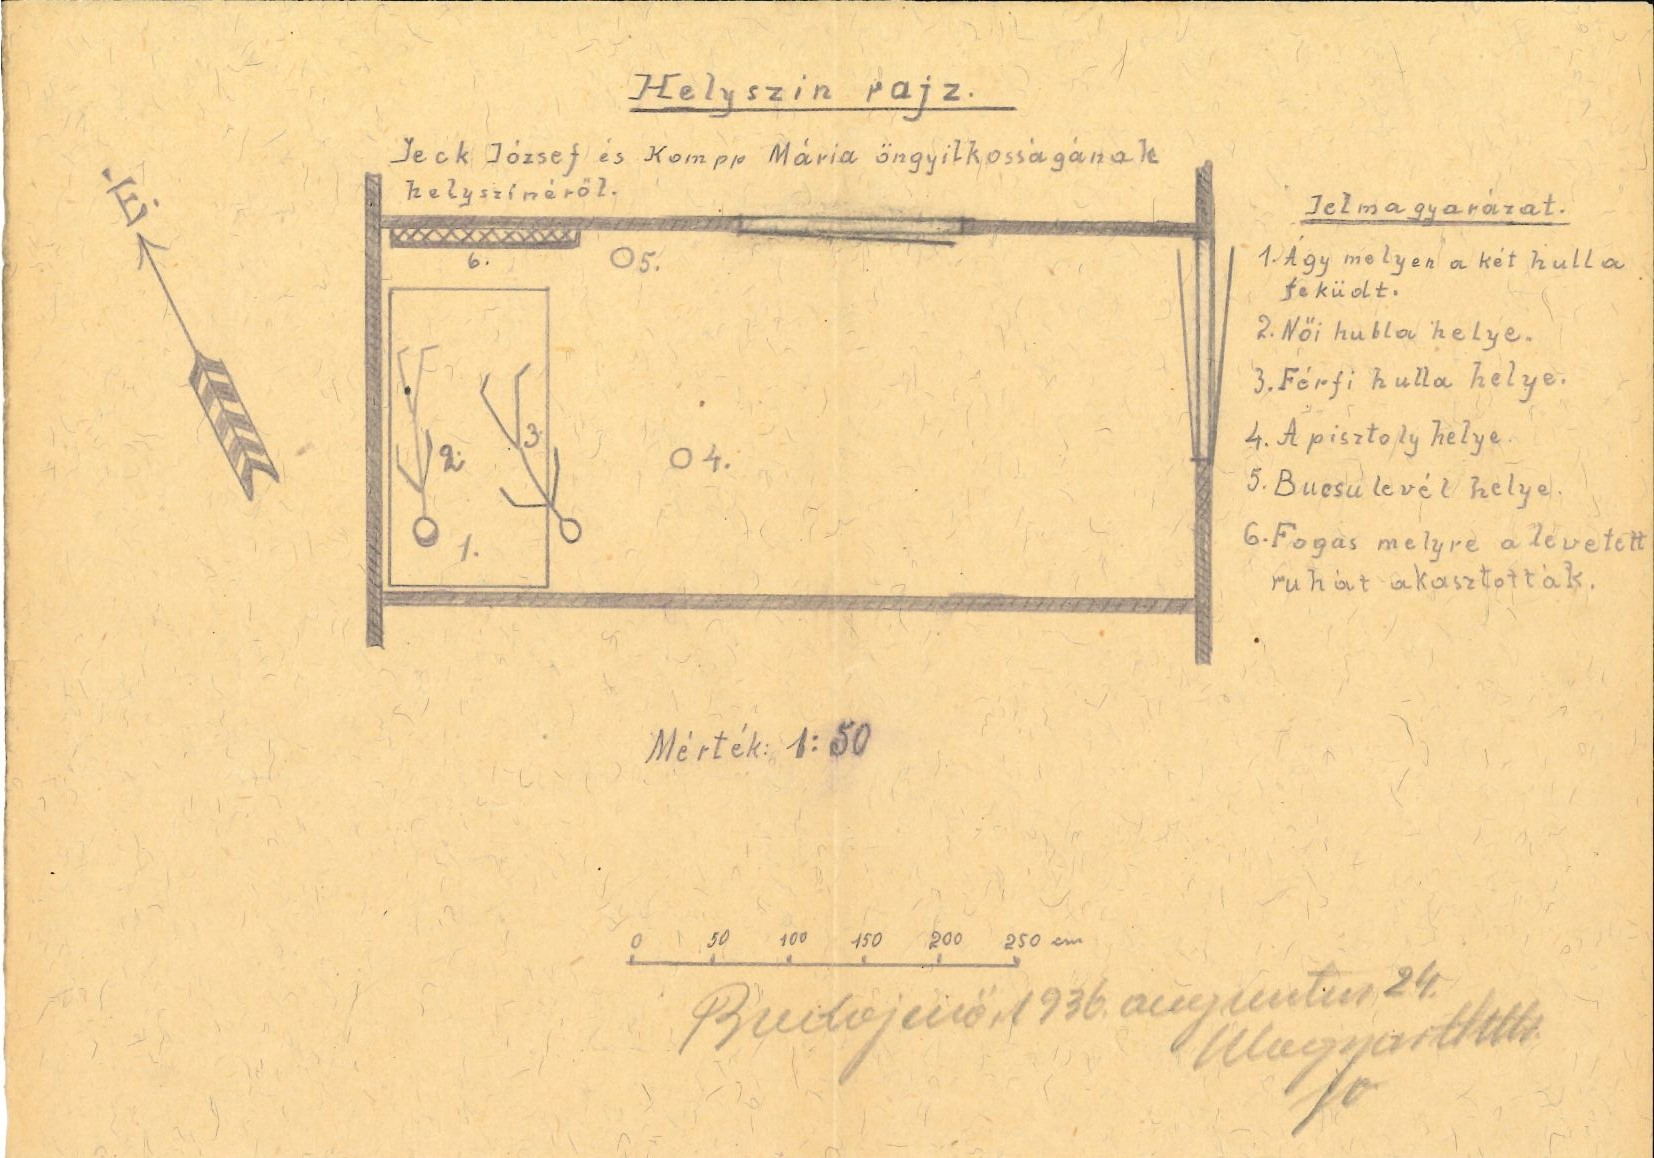 Helyszin rajz.
Jeck József és Kompp Mária öngyilkosságának
helyszinéről.
É.
Jelmagyarázat.
1. Ágy melyen a két hulla
feküdt.
2. Női hulla helye.
3. Férfi hulla helye.
4. A pisztoly helye.
5. Bucsu levél helye.
6. Fogas melyre a levetett
ruhát akasztották.
6.
5.
2.
3.
4.
1.
Mérték: 1:50
0 50 100 150 200 250 cm
Budajenő, 1936. augusztus 24.
Magyar